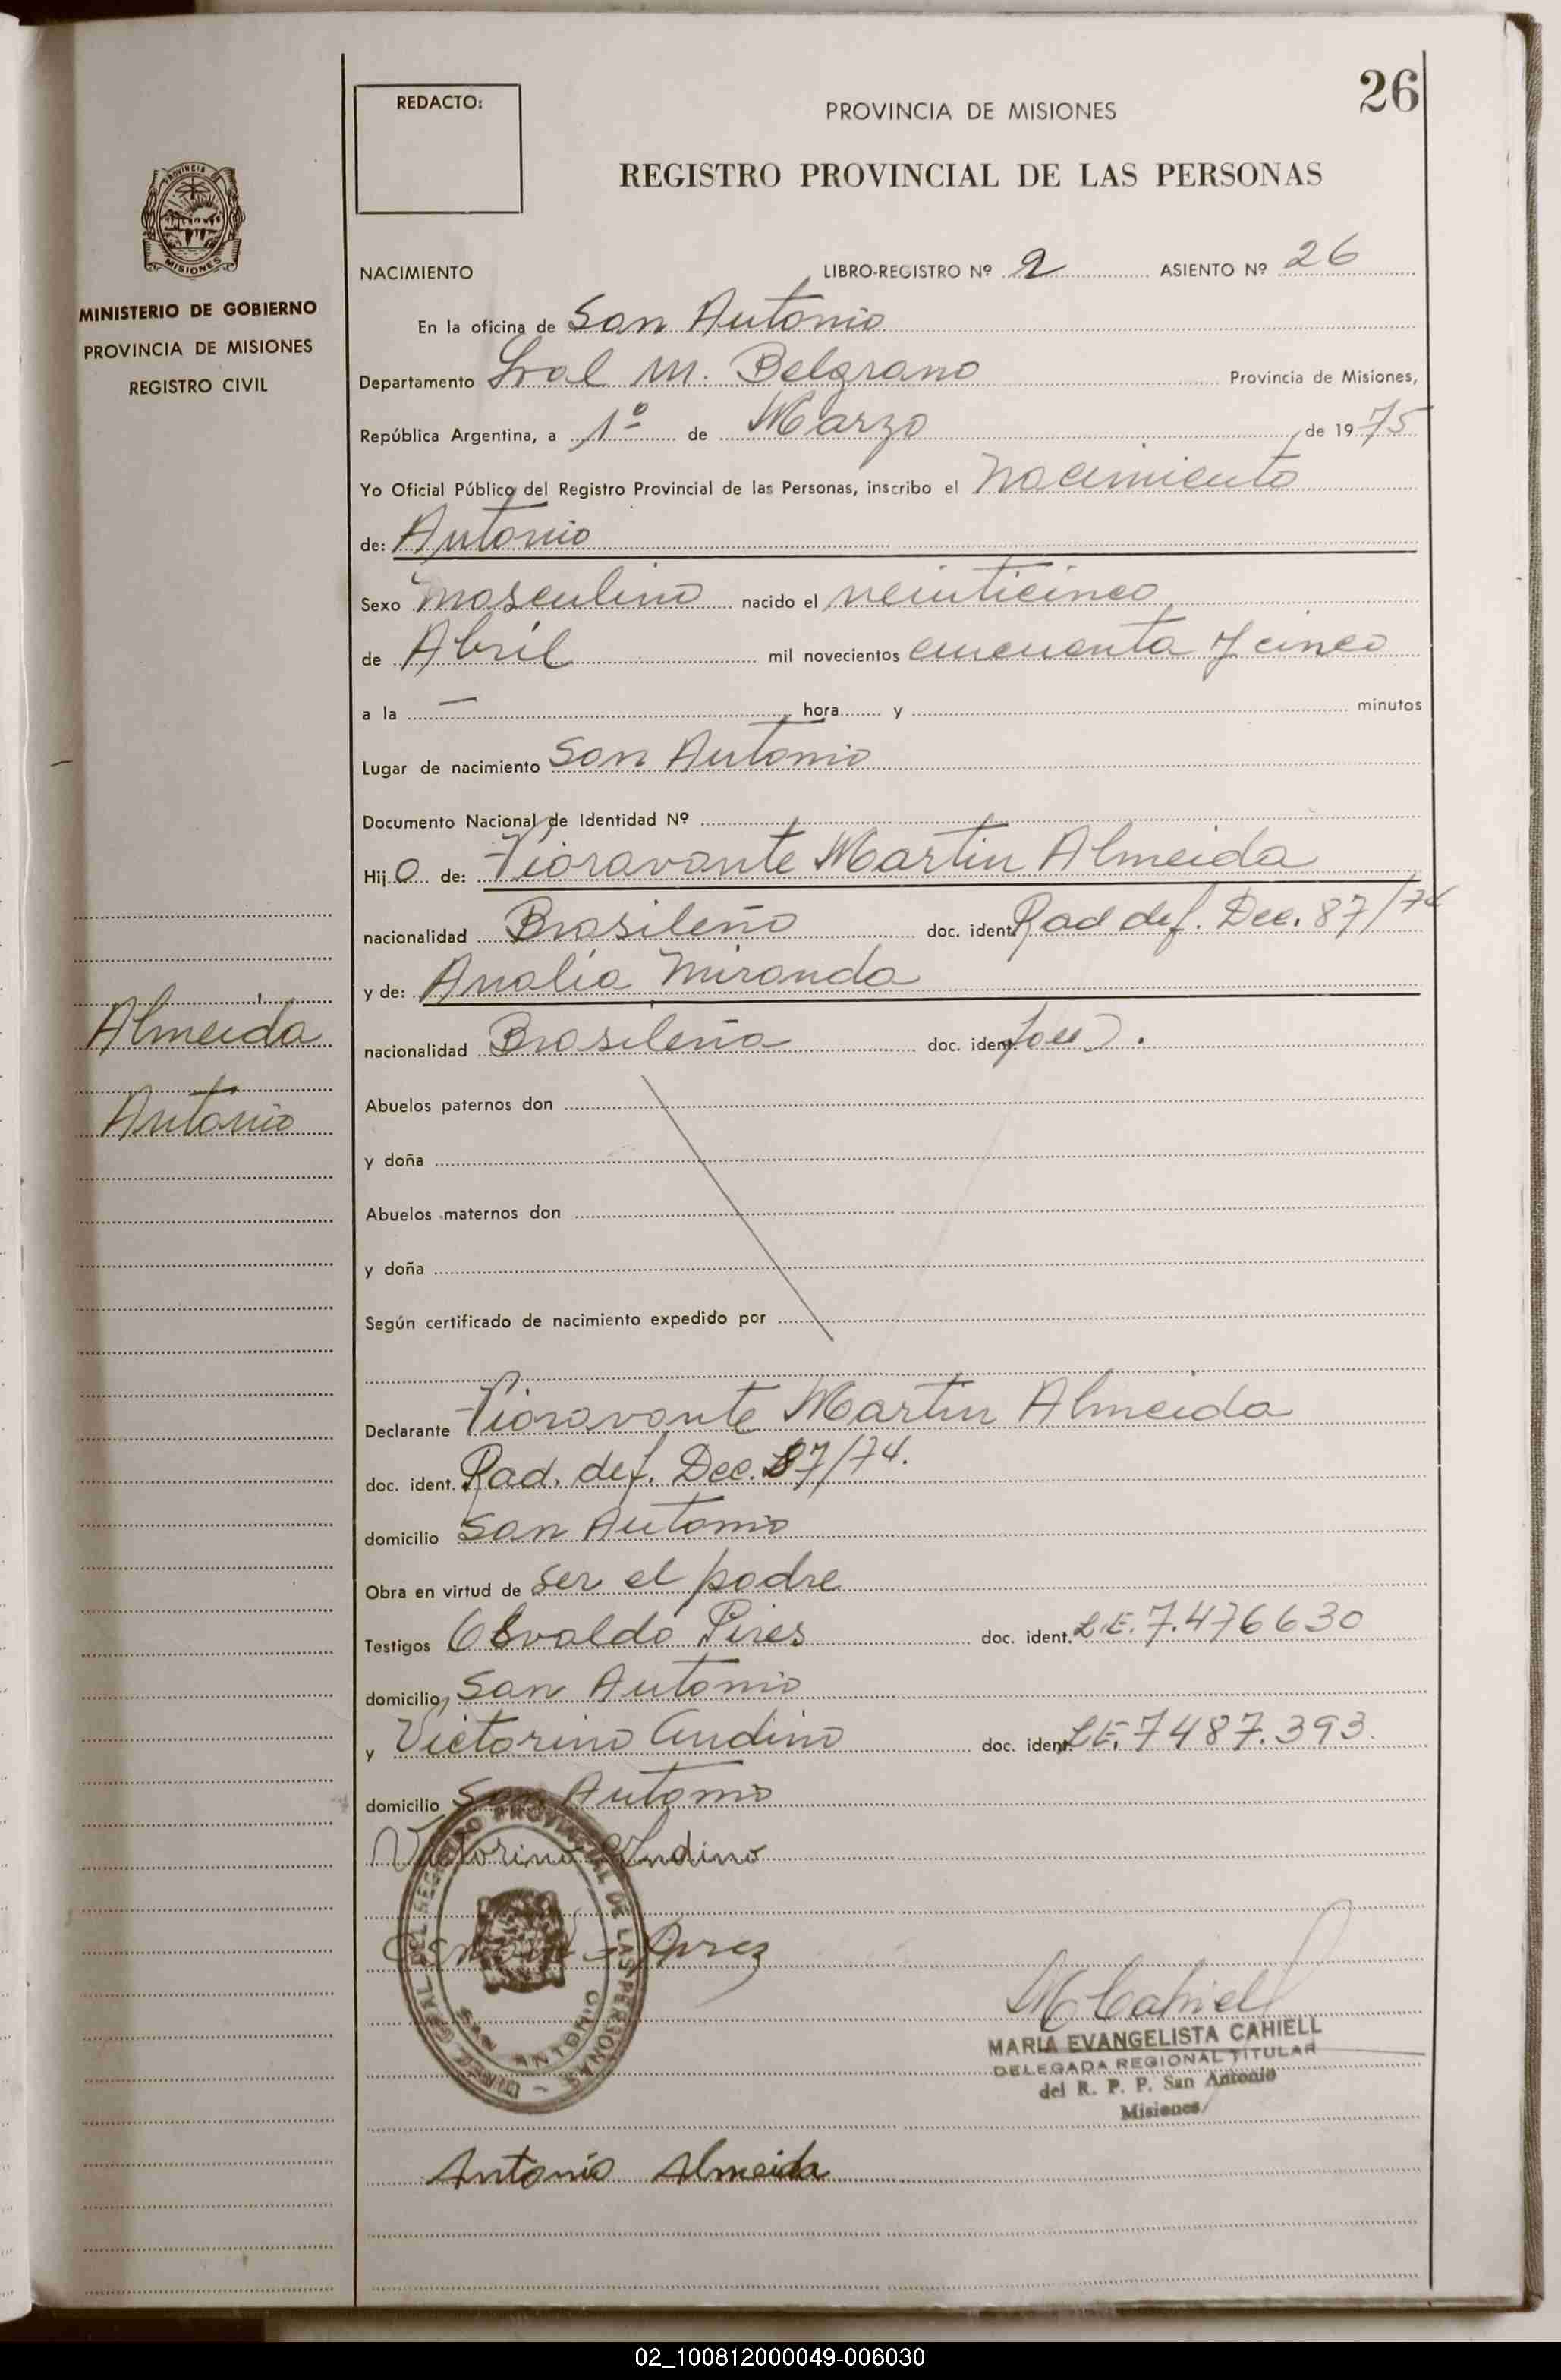 26
REDACTO:
PROVINCIA DE MISIONES
REGISTRO PROVINCIAL DE LAS PERSONAS
PROVINCIA DE MISIONES
MINISTERIO DE GOBIERNO
PROVINCIA DE MISIONES
REGISTRO CIVIL
NACIMIENTO LIBRO-REGISTRO Nº 2 ASIENTO Nº 26
En la oficina de San Antonio
Departamento Gral M. Belgrano Provincia de Misiones,
República Argentina, a 1º de Marzo de 1975
Yo Oficial Público del Registro Provincial de las Personas, inscribo el nacimiento
de: Antonio
Sexo masculino nacido el veinticinco
de Abril mil novecientos cincuenta y cinco
a la — hora y minutos
Lugar de nacimiento San Antonio
Documento Nacional de Identidad Nº
Hijo de: Fioravante Martin Almeida
nacionalidad Brasileño doc. ident. Rad def. Dec. 87/74
y de: Analia Miranda
nacionalidad Brasileña doc. ident.
Almeida
Antonio
Abuelos paternos don
y doña
Abuelos maternos don
y doña
Según certificado de nacimiento expedido por
Declarante Fioravante Martin Almeida
doc. ident. Rad. def. Dec. 87/74.
domicilio San Antonio
Obra en virtud de ser el padre
Testigos Osvaldo Pires doc. ident. L.E. 7.476630
domicilio San Antonio
y Victorino Andino doc. ident. L.E. 7487.393.
domicilio San Antonio
Victorino Andino
M Cahiell
MARIA EVANGELISTA CAHIELL
DELEGADA REGIONAL TITULAR
del R. P. P. San Antonio
Misiones
DIREC. GRAL DEL REGISTRO PROVINCIAL DE LAS PERSONAS –
SAN ANTONIO
Antonio Almeida
02_100812000049-006030